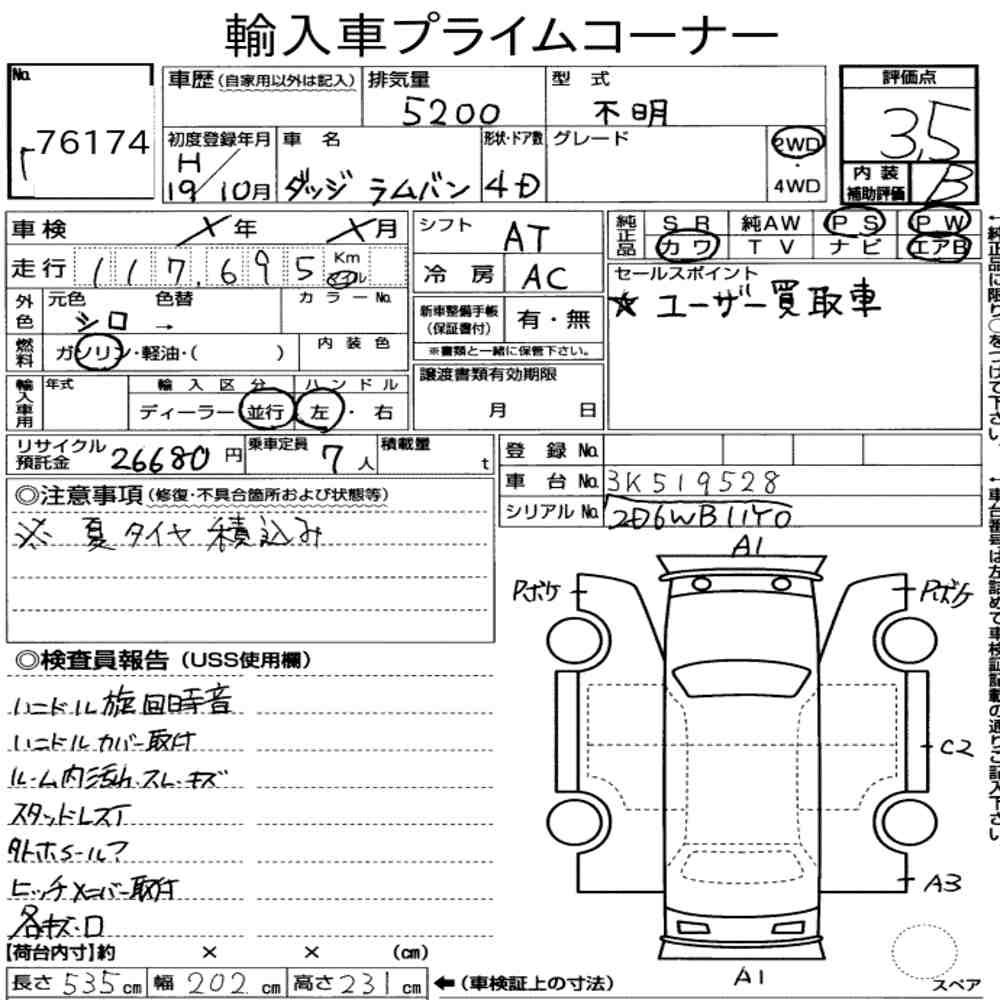 輸入車プライムコーナー
No. 76174
車歴 (自家用以外は記入)
排気量 5200
型式 不明
評価点 3.5
初度登録年月 H19/10月
車名 ダッジ ラムバン
形状・ドア数 4D
グレード
2WD・4WD
内装補助評価 B
車検 X年 X月
走行 117,695 Km マイル
外色 元色 シロ → 色替
カラーNo.
燃料 ガソリン・軽油・( )
内装色
輸入車用 年式
輸入区分 ディーラー・並行
ハンドル 左・右
シフト AT
冷房 AC
新車整備手帳(保証書付) 有・無
※書類と一緒に保管下さい。
譲渡書類有効期限
月 日
純正品 SR 純AW PS PW
カワ TV ナビ エアB
←純正品に限り○をつけて下さい。
セールスポイント
☆ ユーザー買取車
リサイクル預託金 26680円
乗車定員 7人
積載量 t
登録No.
車台No. 3K519528
シリアルNo. 2D6WB11Y0
←車台番号は左詰めで車検証記載の通りご記入下さい。
◎注意事項(修復・不具合箇所および状態等)
※ 夏タイヤ積込み
◎検査員報告(USS使用欄)
ハンドル旋回時音
ハンドルカバー取付
ルーム内汚れ.スレ.キズ
スタッドレスT
ヒッチメンバー取付
各キズ・
A1
Pボケ
Pボケ
C2
A3
A1
スペア
【荷台内寸】約 × × (cm)
長さ 535cm 幅 202cm 高さ 231cm ←(車検証上の寸法)